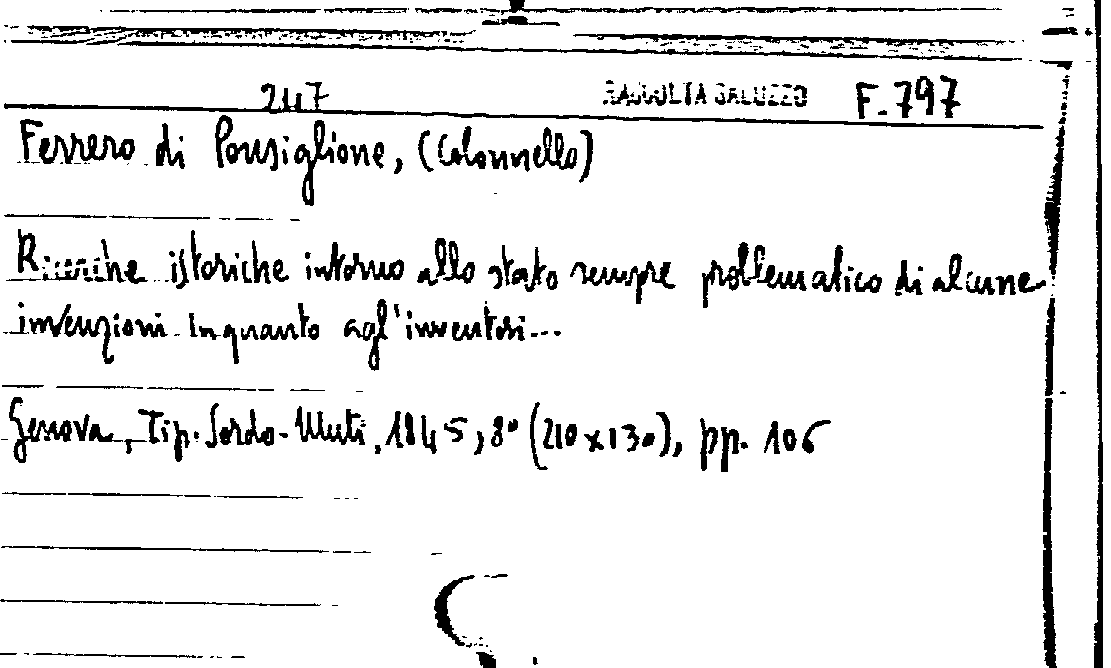 247 RACCOLTA SALUZZO F.797
Ferrero di Ponsiglione, (Colonnello)
Ricerche istoriche intorno allo stato sempre problematico di alcune
invenzioni inquanto agl'inventori...
Genova, Tip. Sordo-Muti, 1845, 8° (210x130), pp. 106